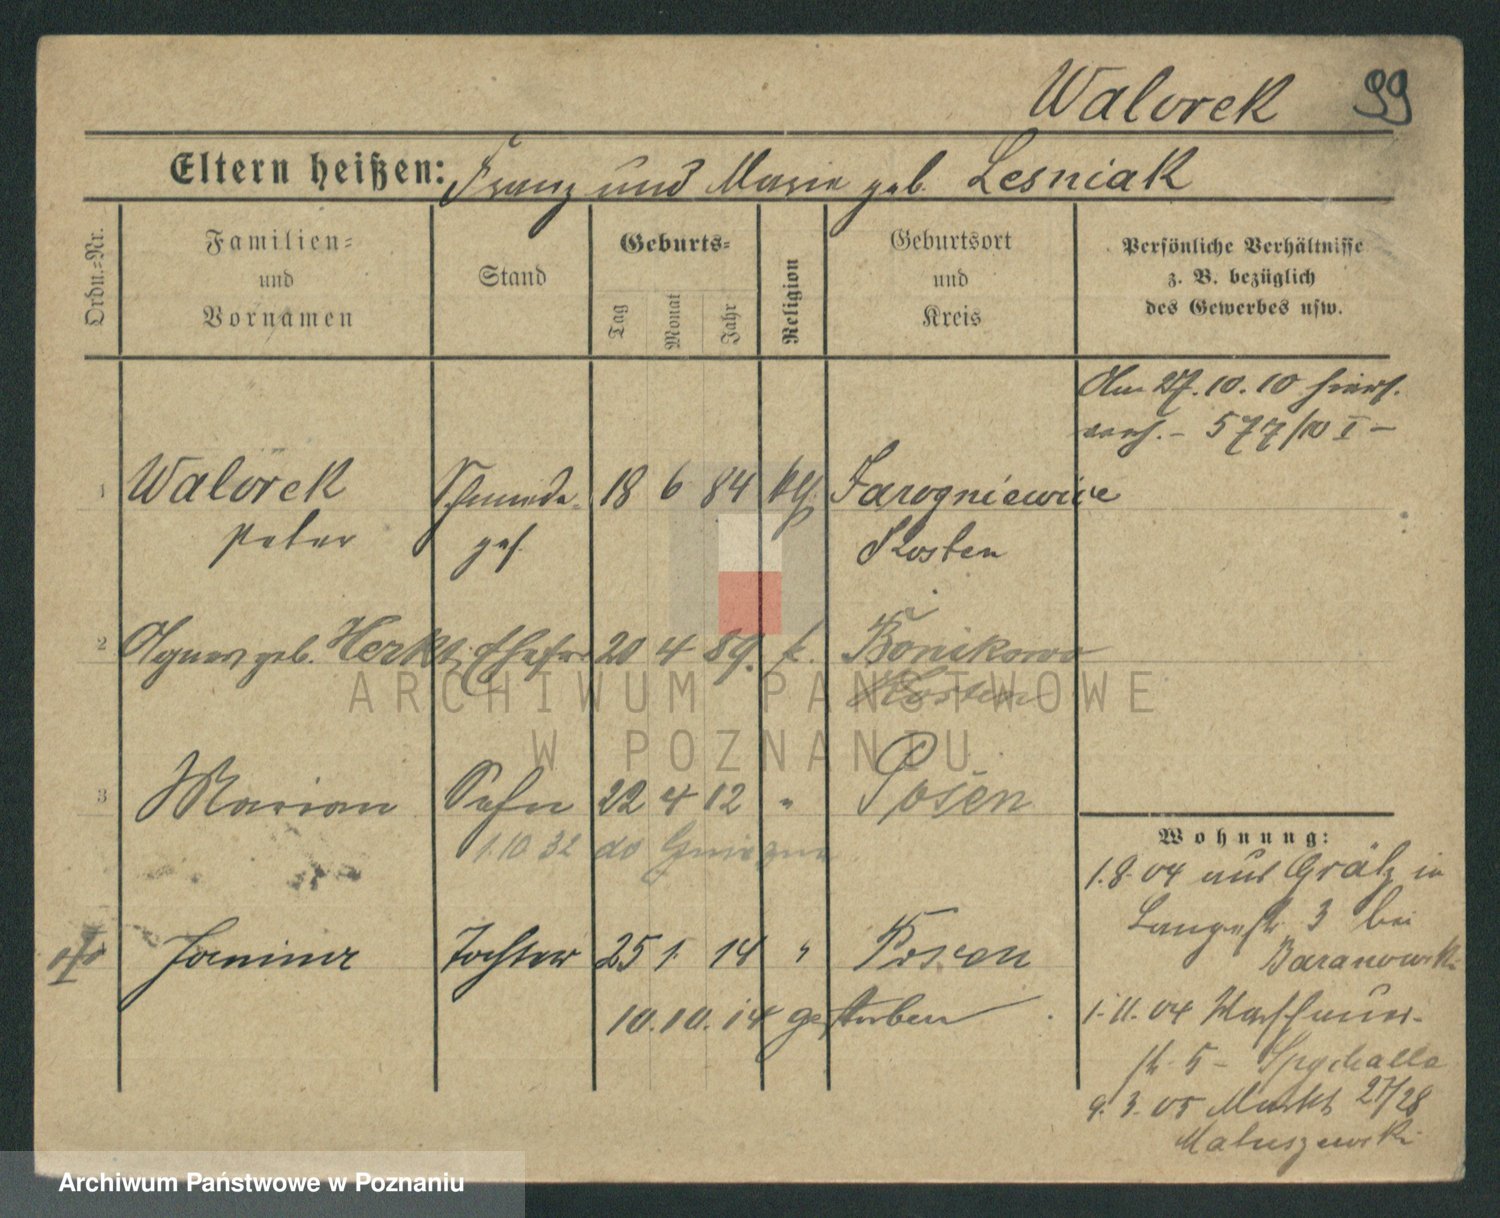 Walorek 99
Eltern heißen: Franz und Marie geb. Lesniak
Ordn.-Nr.
Familien-
und
Vornamen
Stand
Geburts-
Tag
Monat
Jahr
Religion
Geburtsort
und
Kreis
Persönliche Verhältnisse
z. B. bezüglich
des Gewerbes usw.
Am 27.10.10
577/10 I –
1 Walorek 18 6 84 kth. Jarogniewice
Peter ges. Kosten
2 Agnes geb. Herkt, Ehefrau 20 4 89. k. Bonikowo
Kosten
ARCHIWUM PAŃSTWOWE
W POZNANIU
3 Marian Sohn 22 4 12 " Posen
1.10.32 do Gniezna
Janina Tochter 25 1. 14 " Posen
10.10.14 gestorben
Wohnung:
1.8.04 aus Grätz in
Langestr. 3 bei
Baranowski
1.11.04
str. 5 – Spychalla
9.3.05 Markt 27/28
Matuszewski
Archiwum Państwowe w Poznaniu